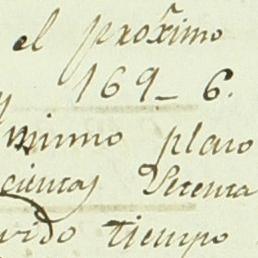 el próximo
169_ 6.
mismo plaso
cientas Setenta
vido tiempo